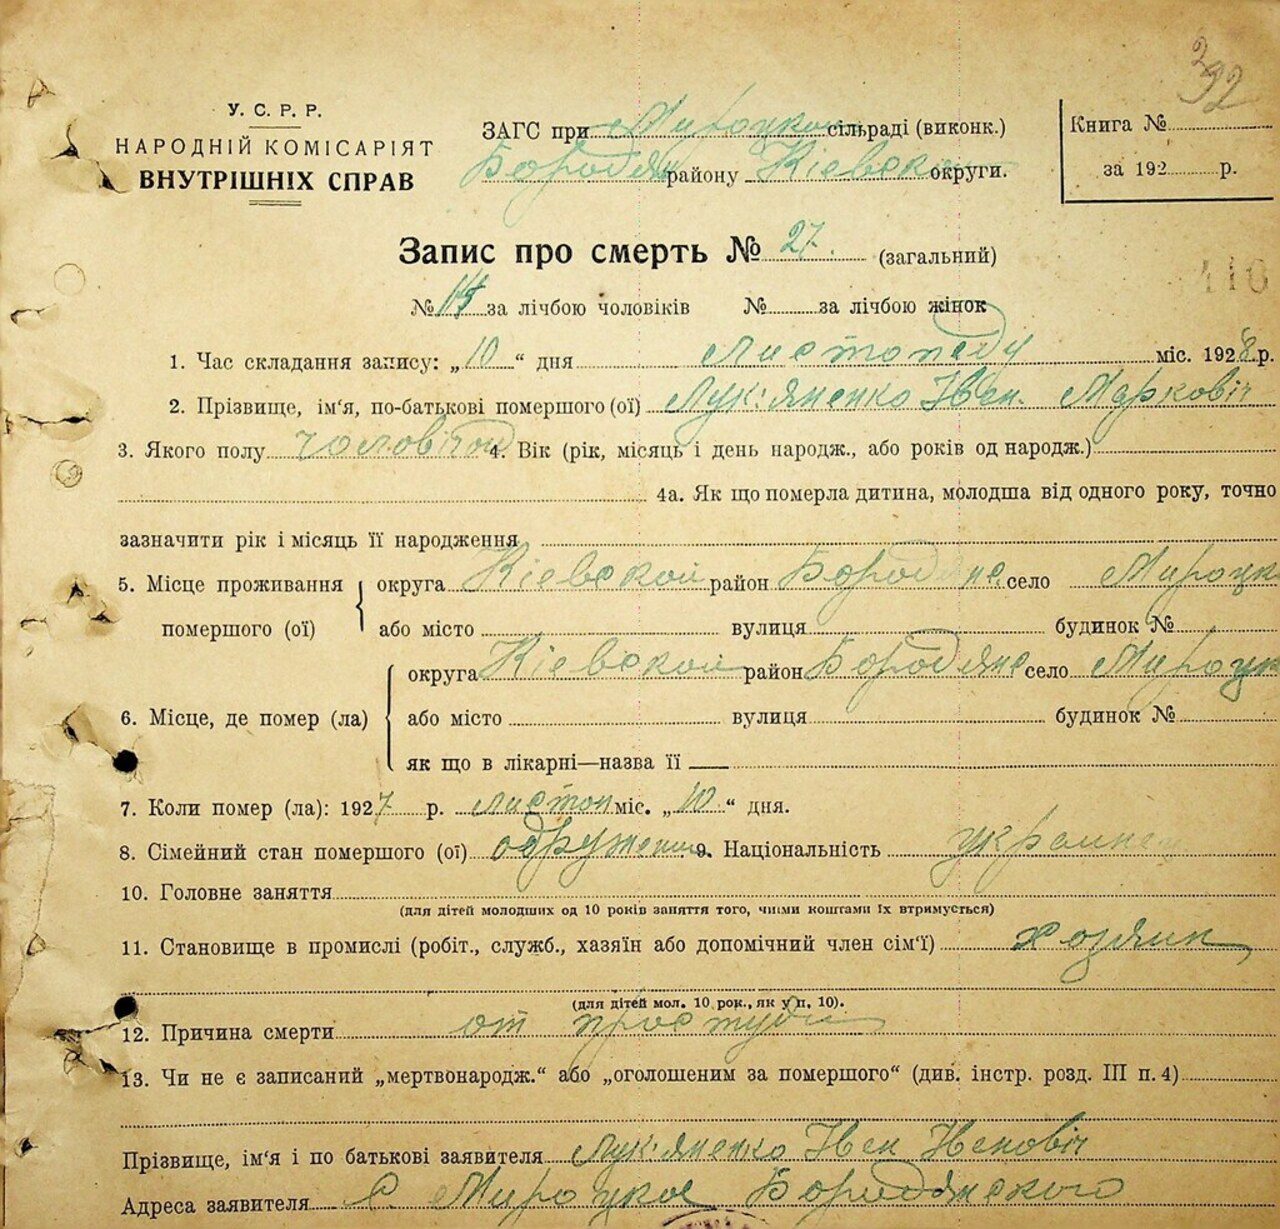 392
У. С. Р. Р.
НАРОДНІЙ КОМІСАРІЯТ
ВНУТРІШНІХ СПРАВ
ЗАГС при Мироцкой сільраді (виконк.)
Бородян району Кіевской округи.
Книга №
за 192 р.
Запис про смерть № 27. (загальний)
110
№ за лічбою чоловіків № за лічбою жінок
1. Час складання запису: „10“ дня Листопаду міс. 1928 р.
2. Прізвище, ім'я, по-батькові помершого (ої) Лук'яненко Іван Маркович
3. Якого полу чоловічой 4. Вік (рік, місяць і день народж., або років од народж.)
4а. Як що померла дитина, молодша від одного року, точно
зазначити рік і місяць її народження
5. Місце проживання помершого (ої) округа Кіевской район Бородянс село Мироцк
або місто вулиця будинок №
6. Місце, де помер (ла) округа Кіевской район Бородянс село Мироцк
або місто вулиця будинок №
як що в лікарні—назва її
7. Коли помер (ла): 1927 р. листоп міс. „10“ дня.
8. Сімейний стан помершого (ої) одружений 9. Національність украинец
10. Головне заняття
(для дітей молодших од 10 років заняття того, чиїми коштами їх втримується)
11. Становище в промислі (робіт., служб., хазяїн або допомічний член сім'ї) хозяин
(для дітей мол. 10 рок., як у п. 10).
12. Причина смерти от простуди
13. Чи не є записаний „мертвонародж.“ або „оголошеним за помершого“ (див. інстр. розд. III п. 4)
Прізвище, ім'я і по батькові заявителя Лук'яненко Іван Іванович
Адреса заявителя С Мироцкое Бородянского